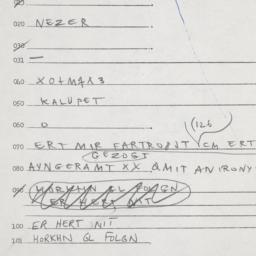 020 NEZER
030
031 —
060
050 KALUPET
060 O
070 ERT MIR FARTROPST CM ERT
(126
GEZOGT
080 AYNGERAMT XX QMIT AN IRONY
090 HORKHN QL FOLGN
ER HERT NIT
100 ER HERT NIT
101 HORKHN QL FOLGN